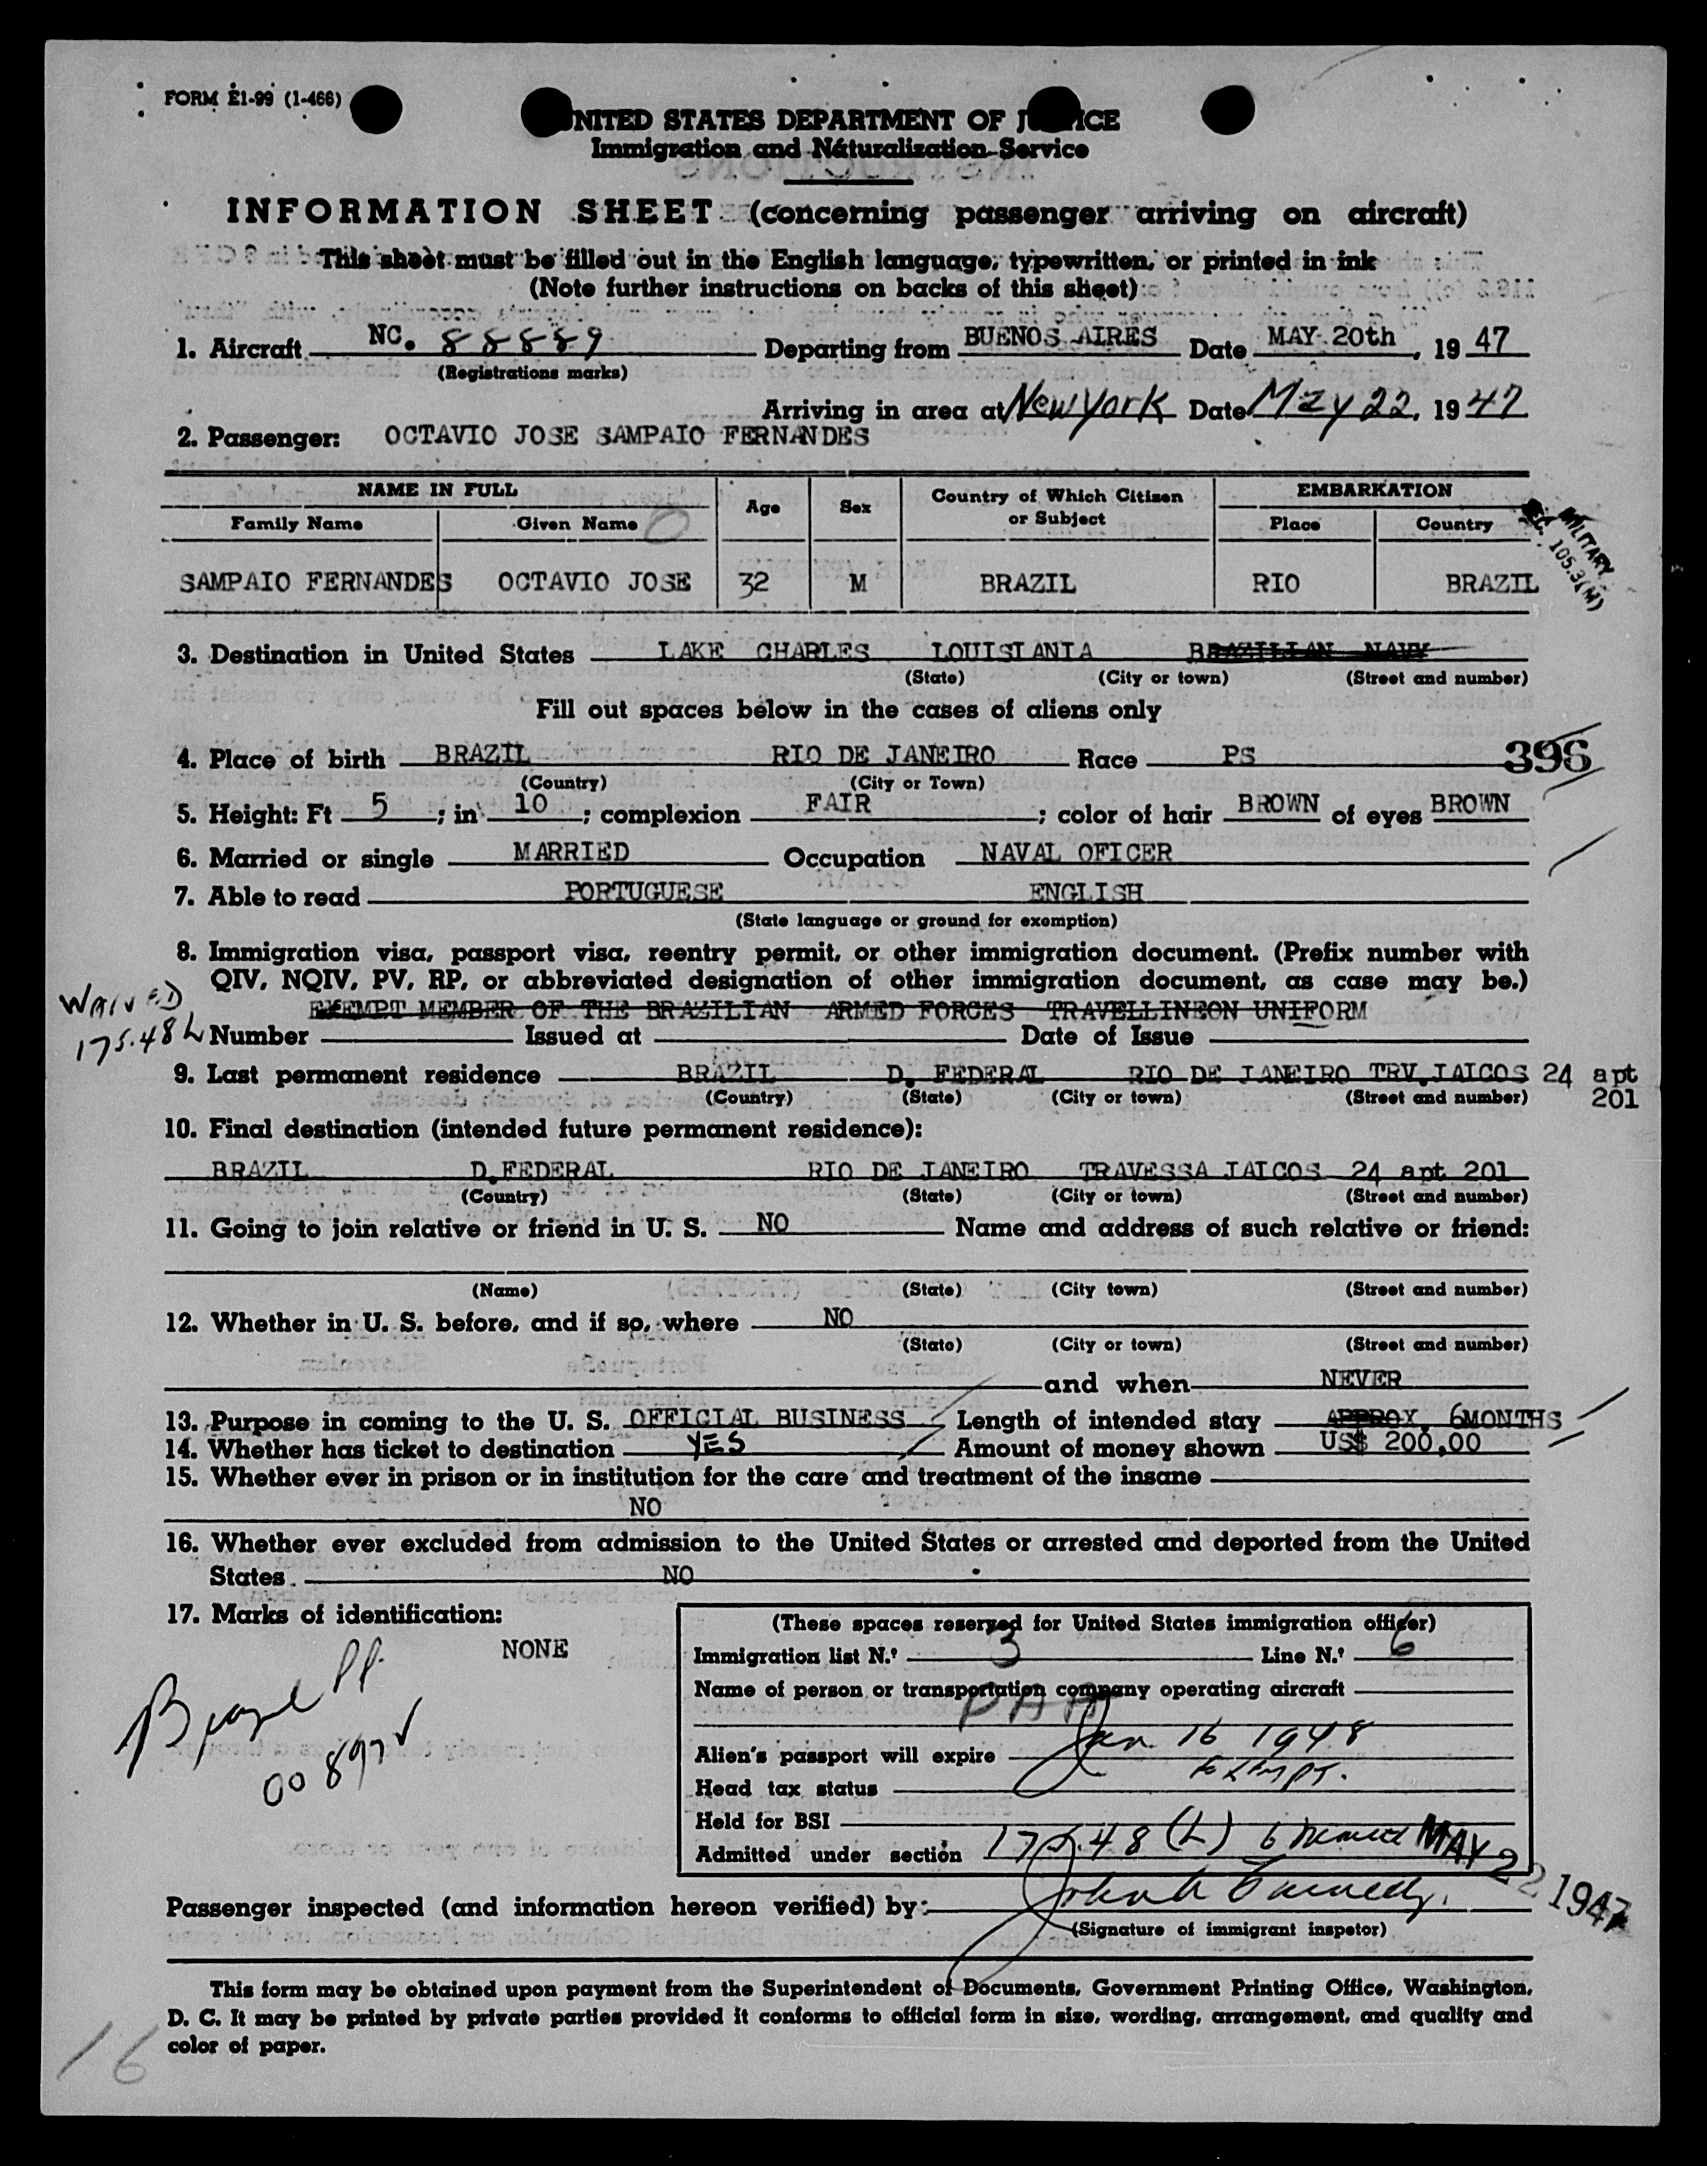 FORM E1-99 (1-466)
UNITED STATES DEPARTMENT OF JUSTICE
Immigration and Naturalization Service
INFORMATION SHEET (concerning passenger arriving on aircraft)
This sheet must be filled out in the English language, typewritten, or printed in ink
(Note further instructions on backs of this sheet)
1. Aircraft NC. 88889 Departing from BUENOS AIRES Date MAY 20th, 19 47
(Registrations marks)
Arriving in area at New York Date May 22, 19 47
2. Passenger: OCTAVIO JOSE SAMPAIO FERNANDES
NAME IN FULL Age Sex Country of Which Citizen or Subject EMBARKATION
Family Name Given Name Place Country
MILITARY
SEC. 105.3(M)
SAMPAIO FERNANDES OCTAVIO JOSE 32 M BRAZIL RIO BRAZIL
3. Destination in United States LAKE CHARLES LOUISIANIA BRAZILIAN NAVY
(State) (City or town) (Street and number)
Fill out spaces below in the cases of aliens only
4. Place of birth BRAZIL RIO DE JANEIRO Race PS 396
(Country) (City or Town)
5. Height: Ft 5; in 10; complexion FAIR; color of hair BROWN of eyes BROWN
6. Married or single MARRIED Occupation NAVAL OFICER
7. Able to read PORTUGUESE ENGLISH
(State language or ground for exemption)
8. Immigration visa, passport visa, reentry permit, or other immigration document. (Prefix number with
QIV, NQIV, PV, RP, or abbreviated designation of other immigration document, as case may be.)
WAIVED EXEMPT MEMBER OF THE BRAZILIAN ARMED FORCES TRAVELLINEON UNIFORM
175.48 L Number Issued at Date of Issue
9. Last permanent residence BRAZIL D. FEDERAL RIO DE JANEIRO TRV.JAICOS 24 apt
(Country) (State) (City or town) (Street and number) 201
10. Final destination (intended future permanent residence):
BRAZIL D.FEDERAL RIO DE JANEIRO TRAVESSA JAICOS 24 apt 201
(Country) (State) (City or town) (Street and number)
11. Going to join relative or friend in U. S. NO Name and address of such relative or friend:
(Name) (State) (City town) (Street and number)
12. Whether in U. S. before, and if so, where NO
(State) (City or town) (Street and number)
and when NEVER
13. Purpose in coming to the U. S. OFFICIAL BUSINESS Length of intended stay APPROX. 6MONTHS
14. Whether has ticket to destination YES Amount of money shown US$ 200,00
15. Whether ever in prison or in institution for the care and treatment of the insane
NO
16. Whether ever excluded from admission to the United States or arrested and deported from the United
States. NO
17. Marks of identification:
NONE
PP.
00897
(These spaces reserved for United States immigration officer)
Immigration list N.º 3 Line N.º 6
Name of person or transportation company operating aircraft
PAA
Alien's passport will expire Jan 16 1948
Head tax status Exempt.
Held for BSI
Admitted under section 175.48 (L) 6 MAY 22 1947
Passenger inspected (and information hereon verified) by:
(Signature of immigrant inspetor)
This form may be obtained upon payment from the Superintendent of Documents, Government Printing Office, Washington,
D. C. It may be printed by private parties provided it conforms to official form in size, wording, arrangement, and quality and
color of paper.
16